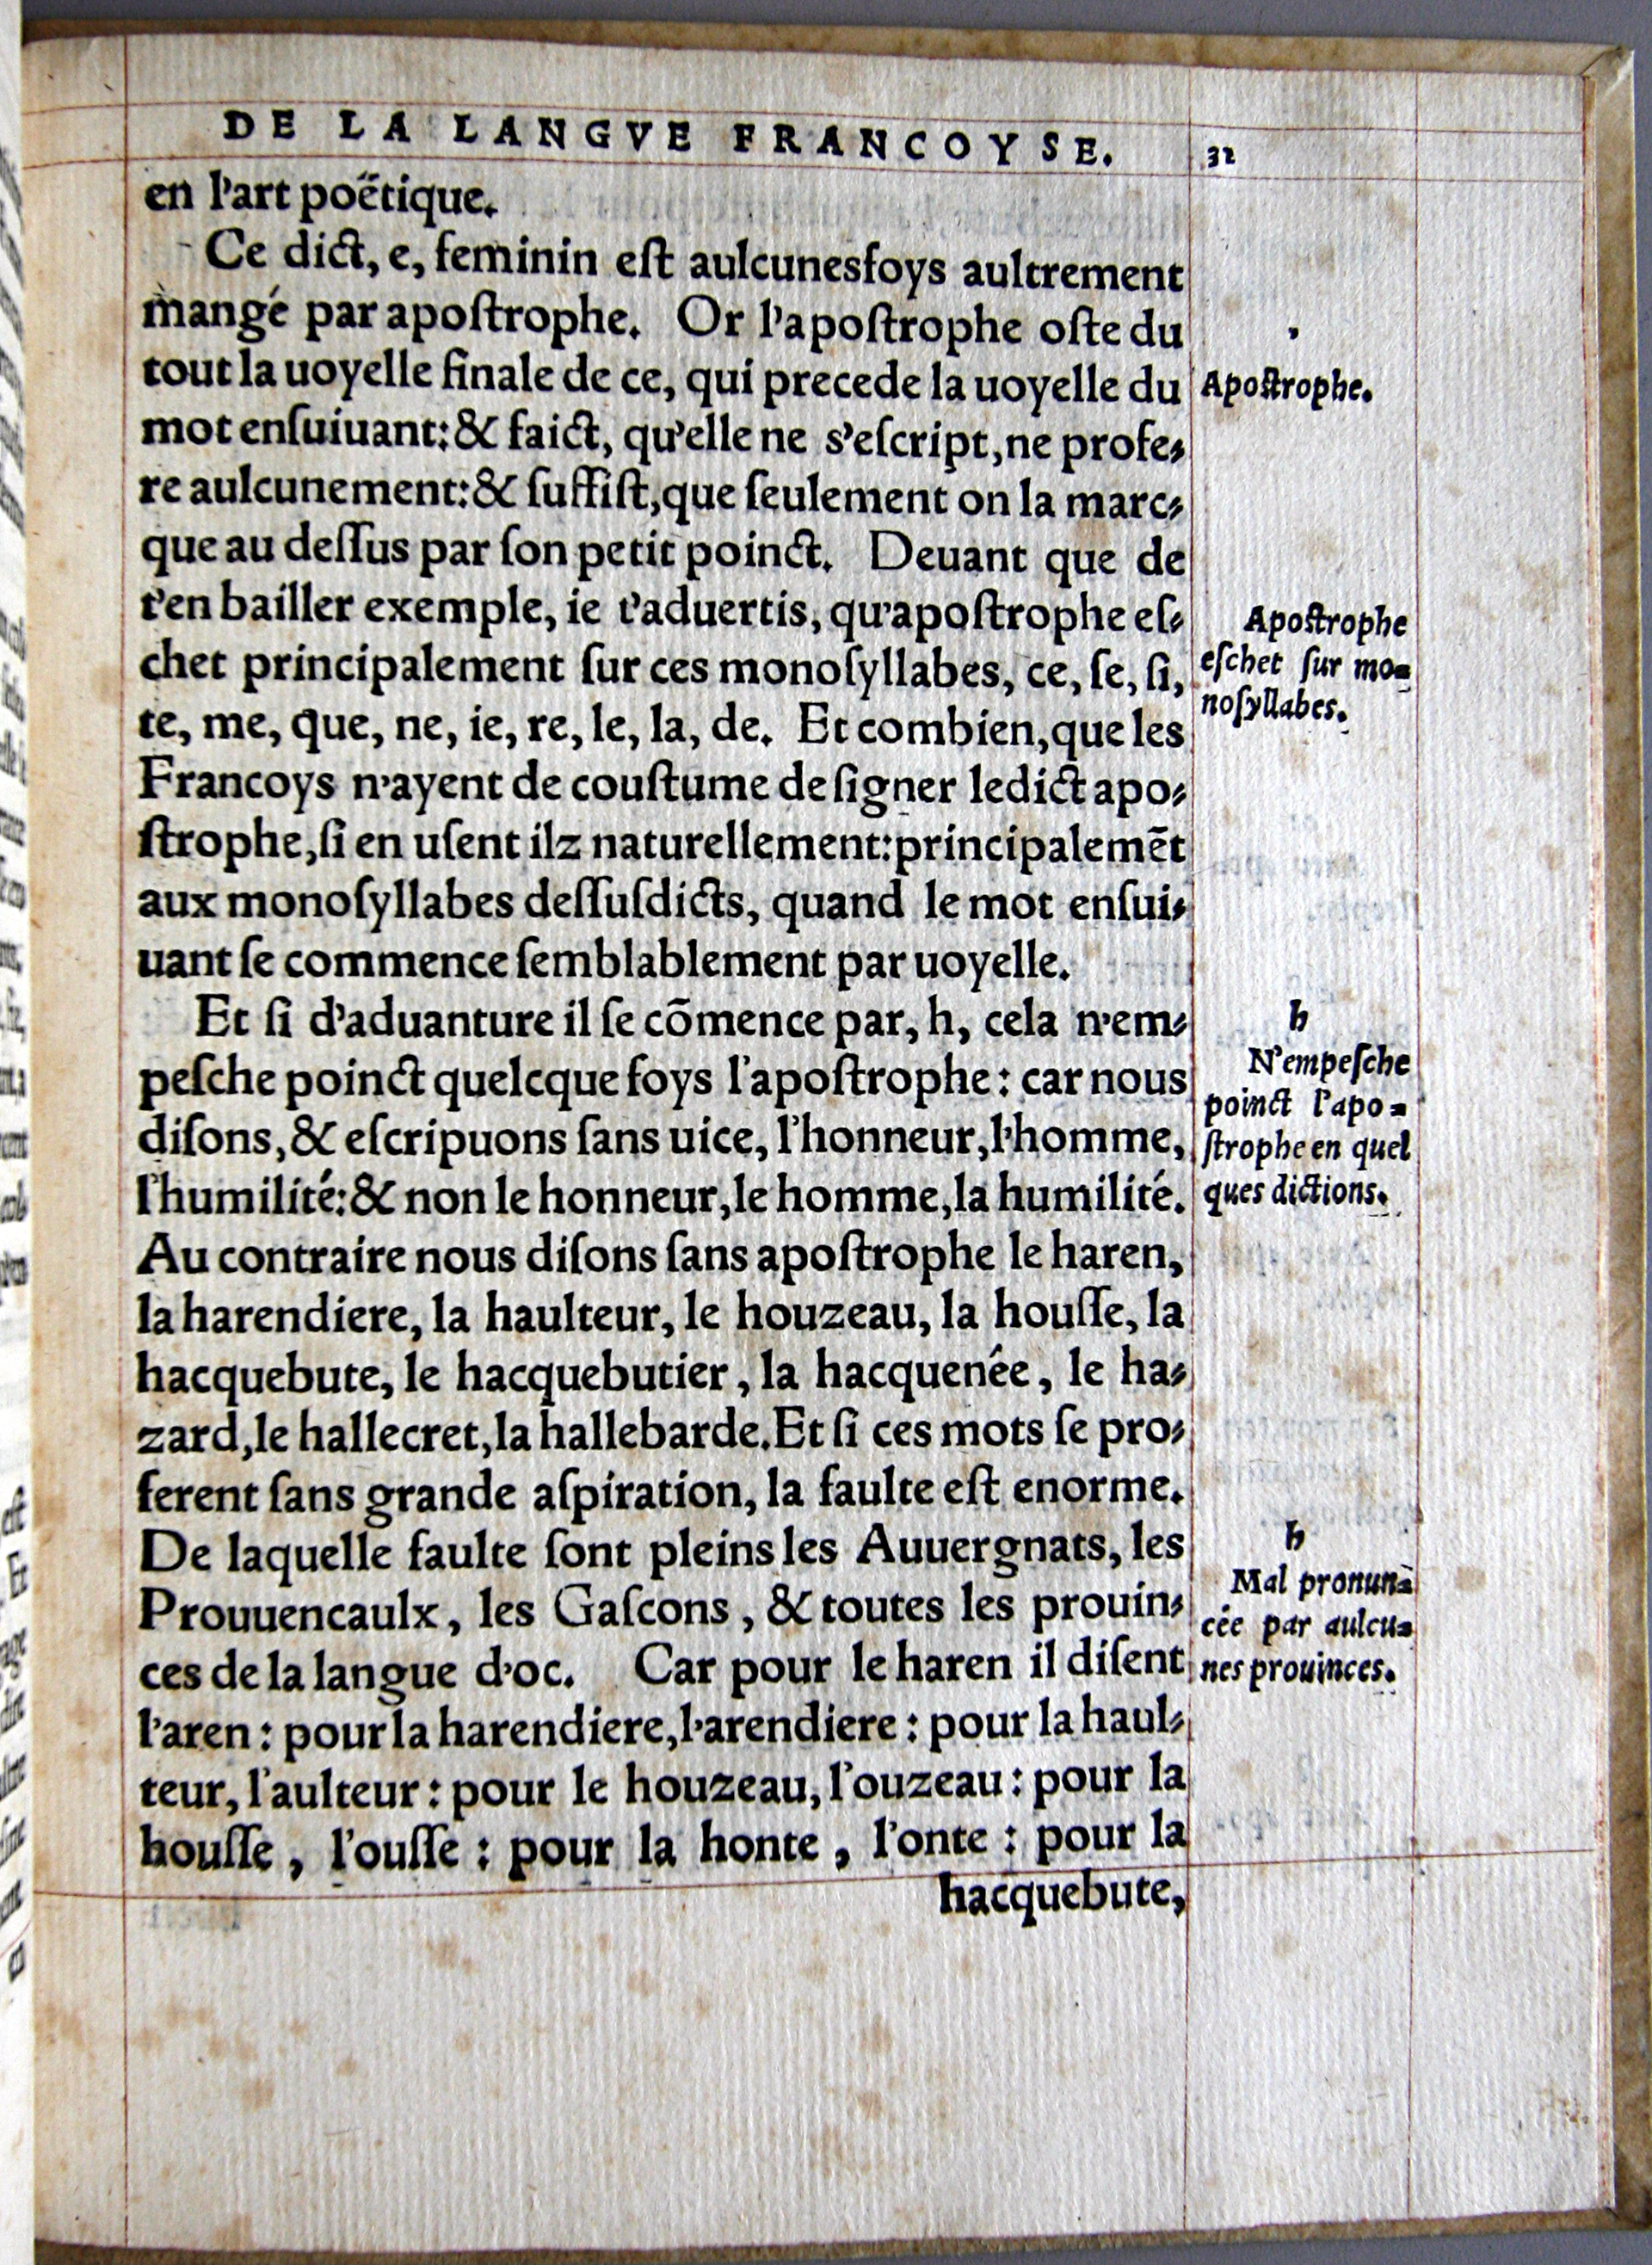 DE LA LANGVE FRANCOYSE.
32
en l'art poëtique.
Ce dict, e, feminin eſt aulcunesfoys aultrement
mangé par apoſtrophe. Or l'apoſtrophe oſte du
tout la uoyelle finale de ce, qui precede la uoyelle du
mot enſuiuant: & faict, qu'elle ne s'eſcript, ne profe⸗
re aulcunement: & ſuffiſt, que ſeulement on la marc⸗
que au deſſus par ſon petit poinct. Deuant que de
t'en bailler exemple, ie t'aduertis, qu'apoſtrophe eſ⸗
chet principalement ſur ces monoſyllabes, ce, ſe, ſi,
te, me, que, ne, ie, re, le, la, de. Et combien, que les
Francoys n'ayent de couſtume de ſigner ledict apo⸗
ſtrophe, ſi en uſent ilz naturellement: principalemēt
aux monoſyllabes deſſuſdicts, quand le mot enſui⸗
uant ſe commence ſemblablement par uoyelle.
Et ſi d'aduanture il ſe cōmence par, h, cela n'em⸗
peſche poinct quelcque foys l'apoſtrophe: car nous
diſons, & eſcripuons ſans uice, l'honneur, l'homme,
l'humilité: & non le honneur, le homme, la humilité.
Au contraire nous diſons ſans apoſtrophe le haren,
la harendiere, la haulteur, le houzeau, la houſſe, la
hacquebute, le hacquebutier, la hacquenée, le ha⸗
zard, le hallecret, la hallebarde. Et ſi ces mots ſe pro⸗
ferent ſans grande aſpiration, la faulte eſt enorme.
De laquelle faulte ſont pleins les Auuergnats, les
Prouuencaulx, les Gaſcons, & toutes les prouin⸗
ces de la langue d'oc. Car pour le haren il diſent
l'aren: pour la harendiere, l'arendiere: pour la haul⸗
teur, l'aulteur: pour le houzeau, l'ouzeau: pour la
houſſe, l'ouſſe: pour la honte, l'onte: pour la
hacquebute,
'
Apoſtrophe.
Apoſtrophe
eſchet ſur mo⸗
noſyllabes.
h
N'empeſche
poinct l'apo⸗
ſtrophe en quel
ques dictions.
h
Mal pronun⸗
cée par aulcu⸗
nes prouinces.